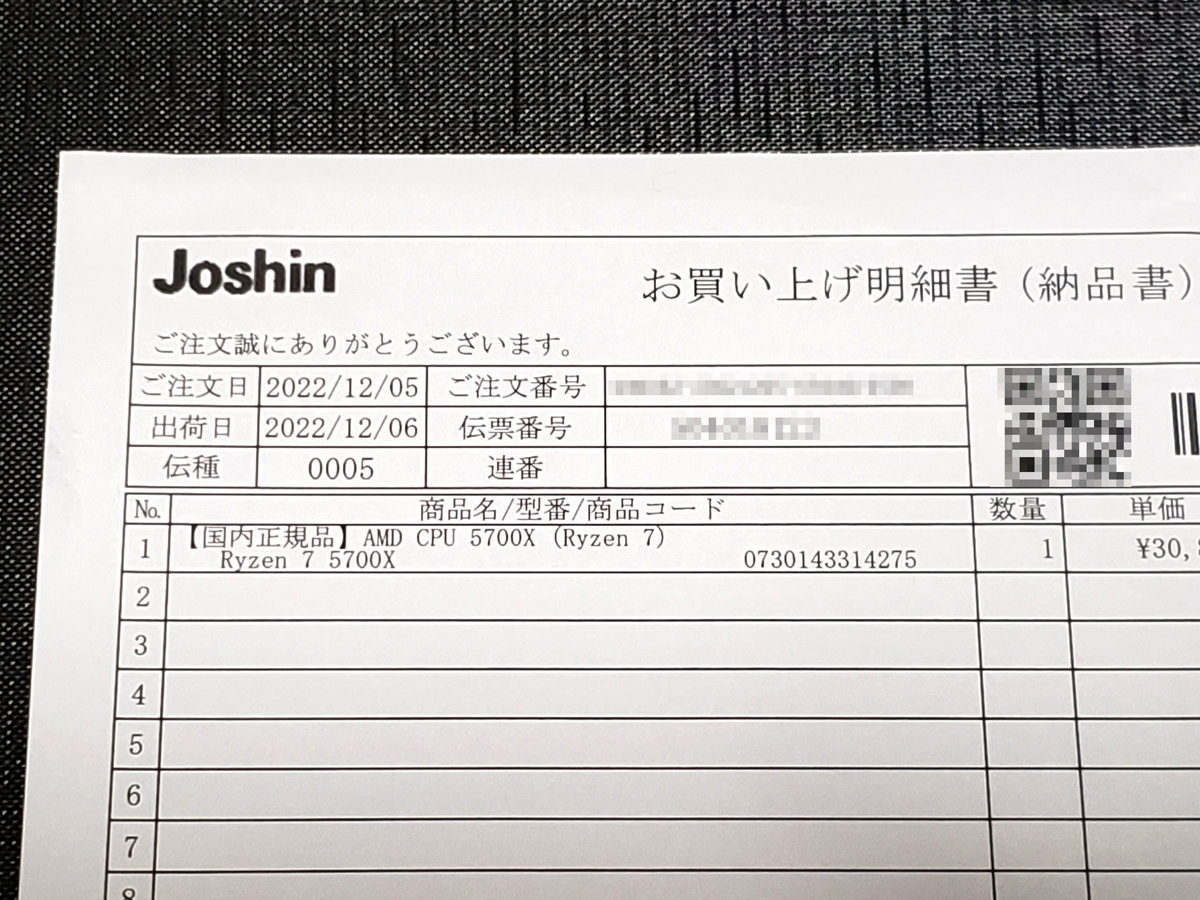 Joshin
お買い上げ明細書（納品書）
ご注文誠にありがとうございます。
ご注文日 2022/12/05 ご注文番号
出荷日 2022/12/06 伝票番号
伝種 0005 連番
No. 商品名/型番/商品コード 数量 単価
1 【国内正規品】AMD CPU 5700X (Ryzen 7)
Ryzen 7 5700X 0730143314275 1 ¥30,
2
3
4
5
6
7
8